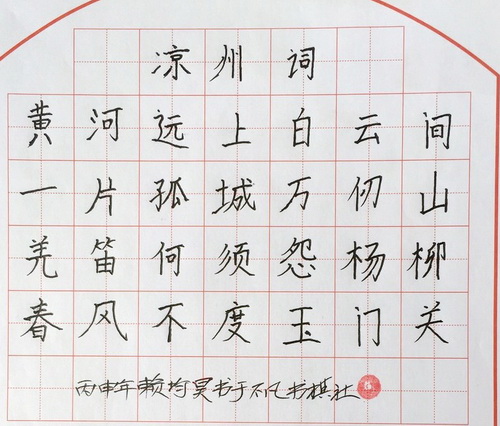 凉州词
黄河远上白云间
一片孤城万仞山
羌笛何须怨杨柳
春风不度玉门关
丙申年赖均昊书于不凡书棋社